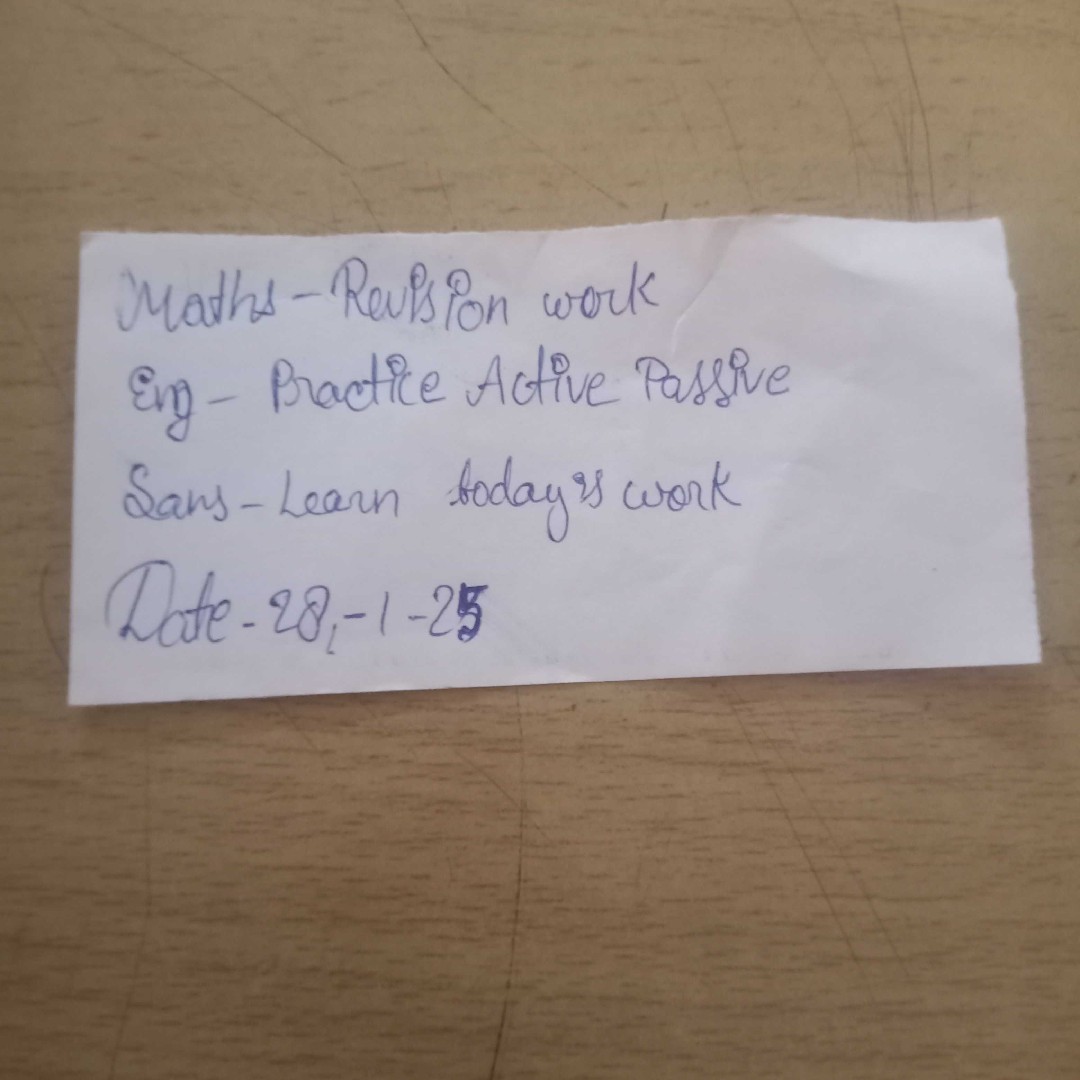 Maths - Revision work
Eng - Practice Active Passive
Sans - Learn today's work
Date - 28, - 1 - 25